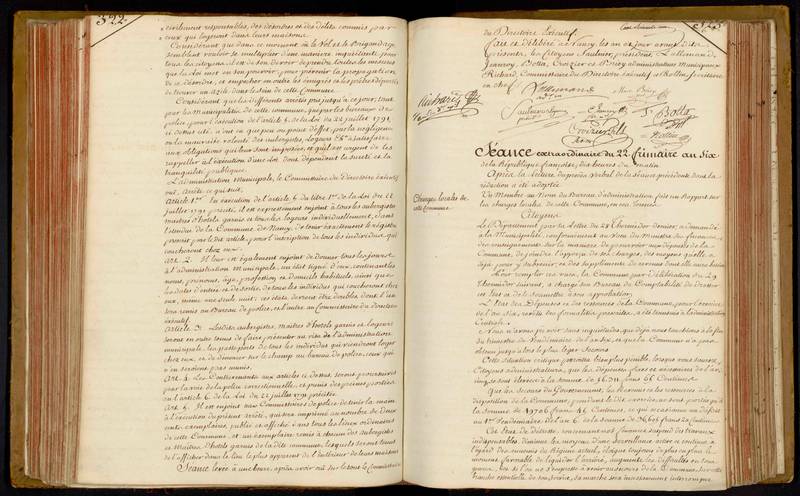 322.
civilement responsables, des désordres et des délits commis par
ceux qui logeront dans leurs maisons.
Considérant que dans ce moment où le Vol et le Brigandage
semblent vouloir se multiplier d'une manière inquiétante pour
tous les citoyens, il est de son devoir de prendre toutes les mesures
que la loi met en son pouvoir, pour prévenir la propagation
de ce désordre, et empêcher en outre les émigrés et les prêtres déportés
de trouver un asile dans le sein de cette Commune.
Considérant que les différents arrêtés pris jusqu'à ce jour, tant
par les Municipalités de cette commune, que par les bureaux de
police, pour l'exécution de l'article 5 de la loi du 22 juillet 1791,
et ont été, n'ont eu que peu ou point d'effet, par la négligence
ou la mauvaise volonté des aubergistes, Logeurs &a. à satisfaire
aux obligations qui leur sont imposées, et qu'il est urgent de les
rappeller à l'exécution d'une loi dont dépendent la sureté et la
tranquilité publiques.
L'administration Municipale, le Commissaire du Directoire Exécutif
ouï, Arrête ce qui suit.
Article 1er. En exécution de l'article 5 du titre 1er de la loi du 22
juillet 1791 précité, il est expressément enjoint à tous les aubergistes
maîtres d'hôtels garnis et tous les logeurs individuellement, dans
l'étendue de la Commune de Nancy, de tenir exactement le régistre
prescrit par ledit article, pour l'inscription de tous les individus qui
coucheront chez eux.
Art. 2. Il leur est également enjoint de donner tous les jours
à l'administration Municipale, un état signé d'eux contenant les
noms, prénoms, âge, profession et domicile habituels, ainsi que
les dates d'entrée et de sortie, de tous les individus qui coucheront chez
eux, même une seule nuit; ces états devront être doubles, dont l'un
sera remis au Bureau de police, et l'autre au Commissaire du directoire
exécutif.
Article 3. Lesdits aubergistes, maîtres d'hôtels garnis et Logeurs
seront en outre tenus de faire présenter au visa de l'administration
municipale les passeports de tous les individus qui viendront loger
chez eux, et de dénoncer sur le champ au bureau de police, ceux qui
n'en seraient pas munis.
Art. 4. Les Contrevenants aux articles ci dessus, seront poursuivis
par la voie de la police correctionnelle, et punis des peines portées
en l'article 6 de la loi du 22 juillet 1791 précitée.
Art. 5. Il est enjoint aux Commissaires de police de tenir la main
à l'exécution du présent arrêté, qui sera imprimé au nombre de Deux
cents exemplaires, publié et affiché dans tous les lieux ordinaires
de cette Commune, et un exemplaire remis à chacun des aubergistes
et Maîtres d'hôtels garnis de ladite commune, lesquels seront tenus
de l'afficher dans le lieu le plus apparent de l'intérieur de leurs maisons
Séance levée à une heure, après avoir ouï sur le tout le Commissaire
323
du Directoire Exécutif.
Fait et délibéré à Nancy, les an et jour avant Dits
présents, les Citoyens Saulnier, président, Lallemand,
Jeanroy, Botta, Croizier et Boiry administrateurs Municipaux
Richard, Commissaire du Directoire exécutif et Rollin, secrétaire
en chef.
Richard
Lallemand
Saulnier
Jeanroy
Botta
Croizier
Rollin
Séance extraordinaire du 22. frimaire an Six
de la République française, dix heures du matin
Après la lecture du procès verbal de la séance précédente dont la
rédaction a été adoptée
Un Membre au Nom du Bureau d'administration, fait un Rapport sur
Charges locales de
cette Commune
les charges locales de cette Commune, en ces termes
Citoyens
Le Département par sa Lettre du 28 thermidor dernier, a demandé
à la Municipalité, conformément au vœu du Ministre des finances
des renseignements sur la manière de pourvoir aux dépenses de la
Commune, de joindre l'apperçu de ses charges, des moyens qu'elle a
déjà pour y subvenir et des suppléments de revenu dont elle aura besoin
Pour remplir ces vues, la Commune par délibération du 29
thermidor suivant, a chargé son Bureau de Comptabilité de dresser
cet état et de le soumettre à son approbation.
L'état des Dépenses et des ressources de la Commune, pour l'exercice
de l'an Six, revêtu des formalités prescrites, a été transmis à l'administration
Centrale.
Nous n'avons pu voir sans inquiétudes, que déjà nous touchions à la fin
du trimestre de Vendémiaire de l'an six, et que la Commune n'a pu
obtenir jusqu'alors le plus léger secours.
Cette situation critique paraîtra bien plus pénible, lorsque vous saurez,
Citoyens administrateurs, que les dépenses fixes et arriérées de l'an
cinq se sont élevées à la somme de
Que les secours du Gouvernement, les Revenus et les ressources à la
disposition de la Commune, pendant le Dit exercice, ne sont portés qu'à
la somme de 41706 francs 46 Centimes, ce qui occasionne un déficit
au 1er Vendémiaire de l'an 6 de la somme de
Cet état de Détresse, en venant nous forcer à suspendre des travaux
indispensables, diminue les moyens d'une surveillance active et continue à
l'égard des ennemis du Régime actuel, éloigne toujours de plus en plus le
moment favorable de liquider l'arriéré, augmente les difficultés en tout
genre, et si l'on ne s'empresse à venir au secours de la Commune sur cette
branche essentielle de son service, sa marche sera incessamment interrompue